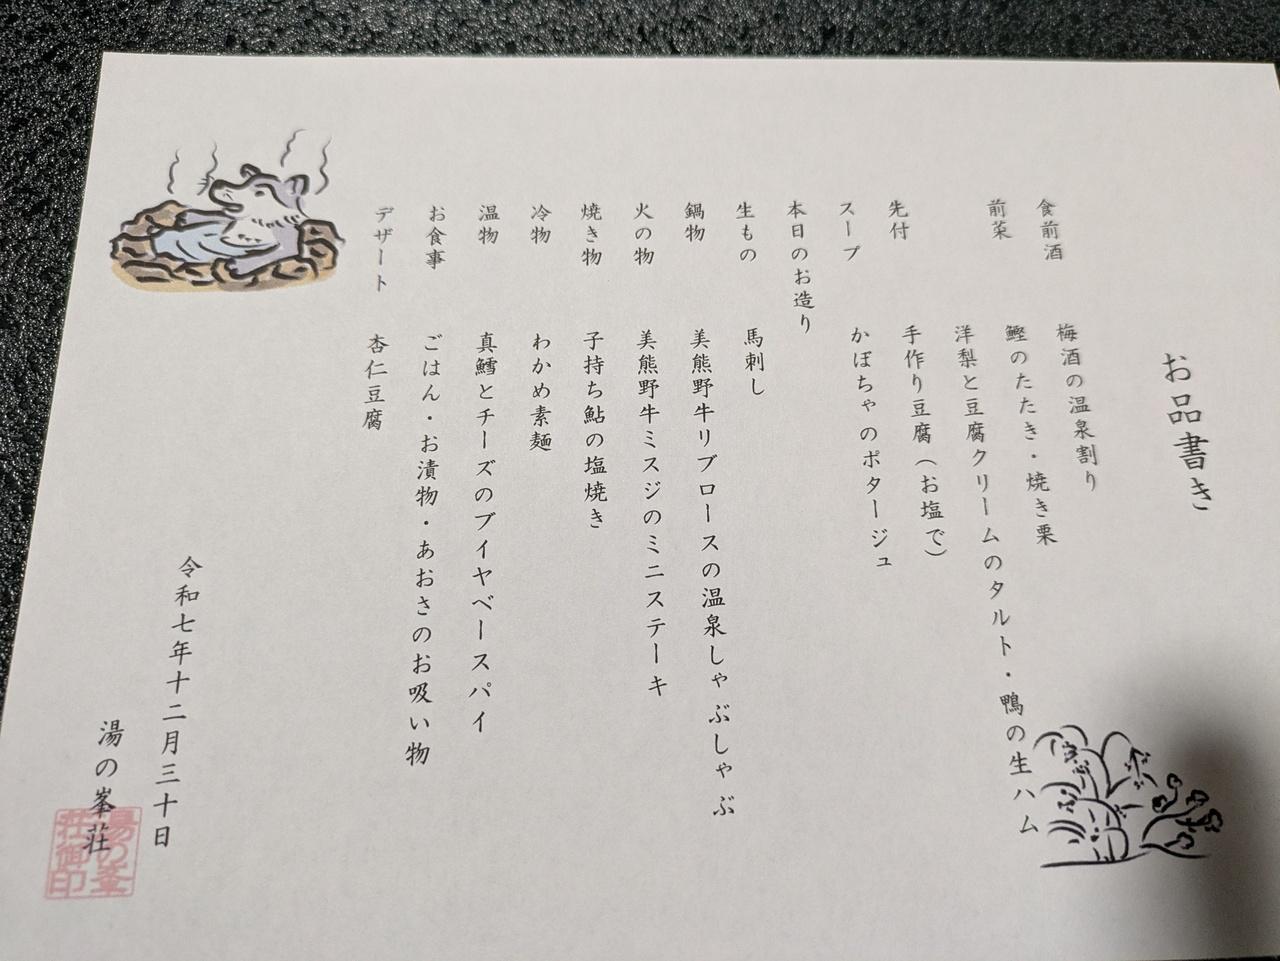 お品書き
食前酒　梅酒の温泉割り
前菜　鰹のたたき・焼き栗
洋梨と豆腐クリームのタルト・鴨の生ハム
先付　手作り豆腐（お塩で）
スープ　かぼちゃのポタージュ
本日のお造り
生もの　馬刺し
鍋物　美熊野牛リブロースの温泉しゃぶしゃぶ
火の物　美熊野牛ミスジのミニステーキ
焼き物　子持ち鮎の塩焼き
冷物　わかめ素麺
温物　真鱈とチーズのブイヤベースパイ
お食事　ごはん・お漬物・あおさのお吸い物
デザート　杏仁豆腐
令和七年十二月三十日
湯の峯荘
湯の峯
荘御印